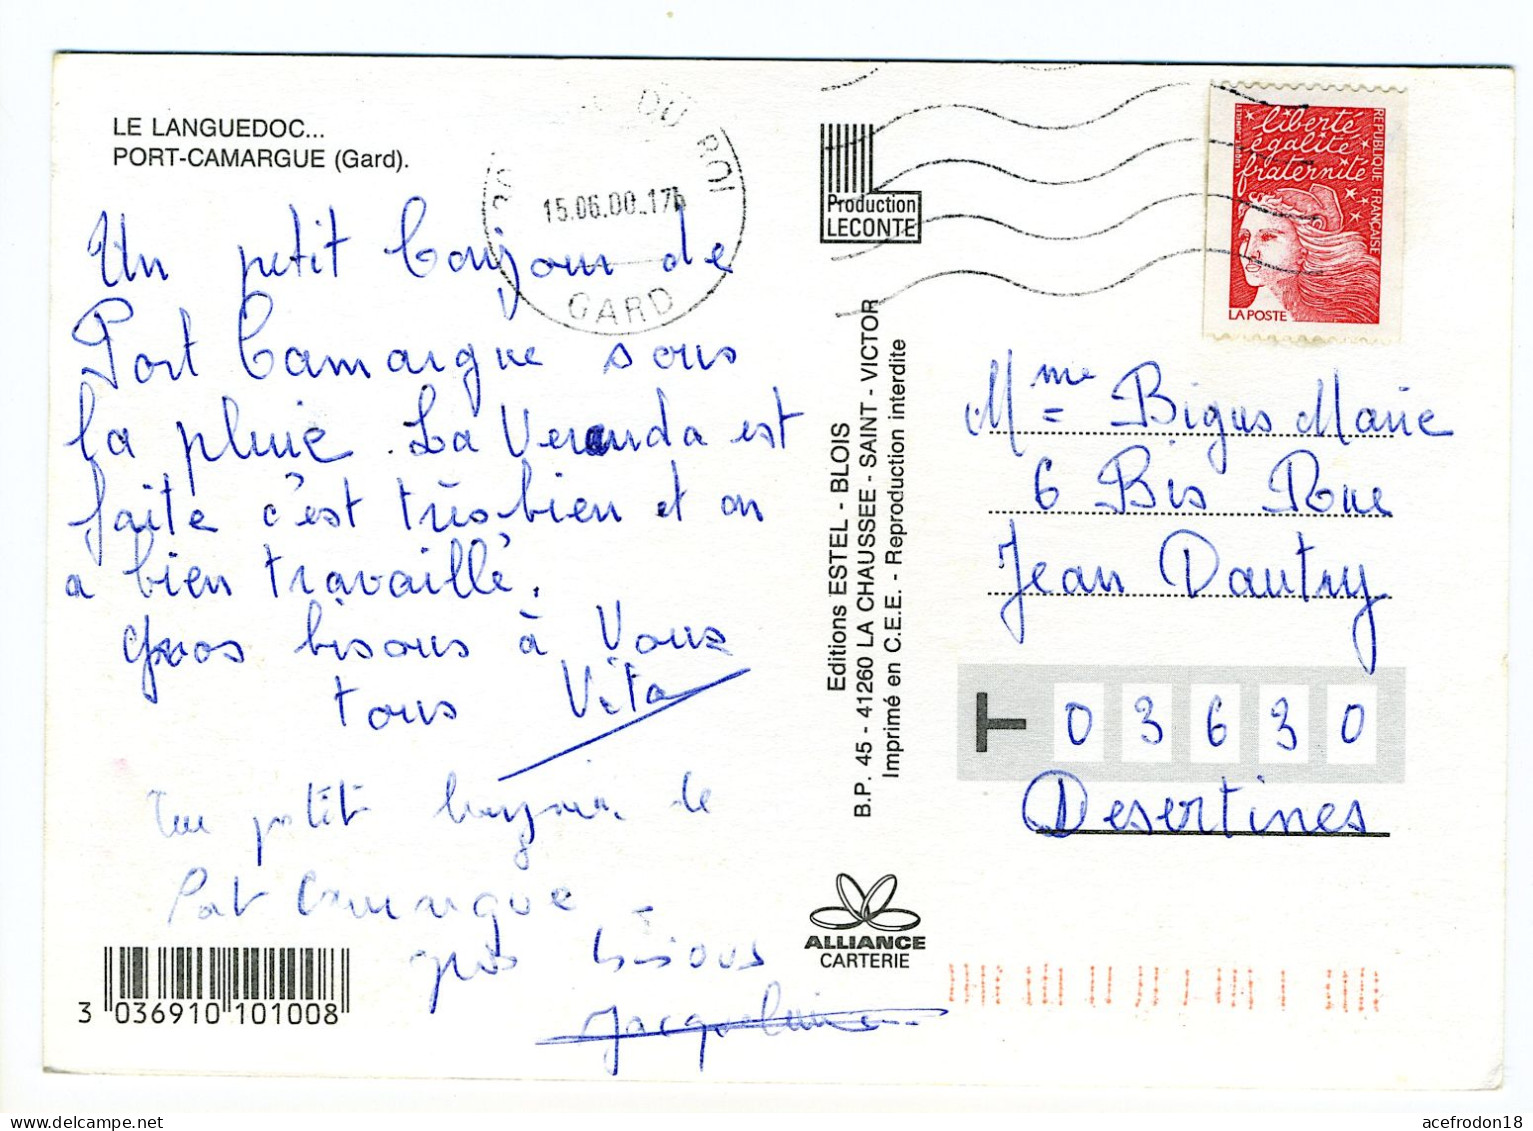 LE LANGUEDOC...
PORT-CAMARGUE (Gard).
Un petit bonjour de
Port Camargue sous
la pluie. La Veranda est
faite c'est très bien et on
a bien travaillé.
gros bisous à Vous
tous Vita
petit bonjour de
Port Camargue
gros bisous
Jacqueline
3 036910 101008
DU ROI
15.06.00.17h
GARD
Production
LECONTE
Editions ESTEL - BLOIS
B.P. 45 - 41260 LA CHAUSSEE - SAINT - VICTOR
Imprimé en C.E.E. - Reproduction interdite
ALLIANCE
CARTERIE
liberté
égalité
fraternité
REPUBLIQUE FRANÇAISE
LA POSTE
Mme Bigus Marie
6 Bis Rue
Jean Dautry
T 03630
Desertines
acefrodon18